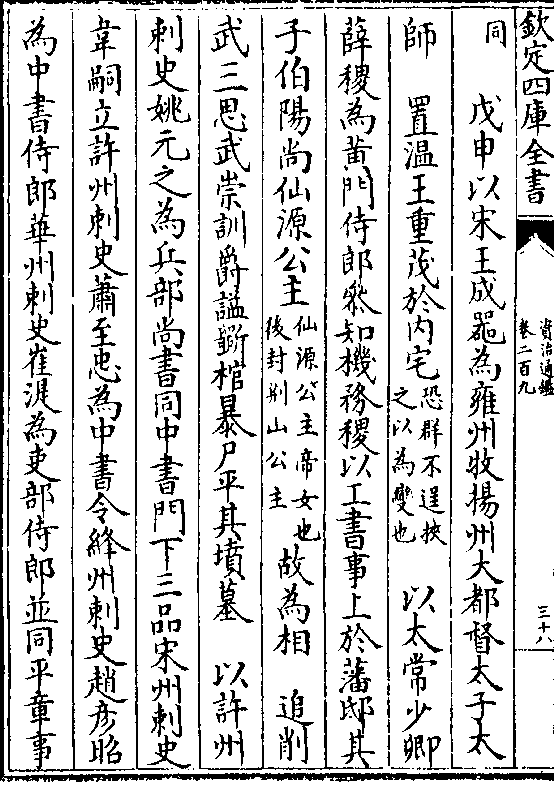 欽定四庫全書
資治通鑑
卷二百九
三十八
同　戊申以宋王成器為雍州牧揚州大都督太子太
師　置温王重茂於内宅恐群不逞挾之以為變也　以太常少卿
薛稷為黄門侍郎叅知機務稷以工書事上於藩邸其
子伯陽尚仙源公主仙源公主帝女也後封荆山公主故為相　追削
武三思武崇訓爵諡斵棺暴尸平其墳墓　以許州
刺史姚元之為兵部尚書同中書門下三品宋州刺史
韋嗣立許州刺史蕭至忠為中書令絳州刺史趙彦昭
為中書侍郎華州刺史崔湜為吏部侍郎並同平章事